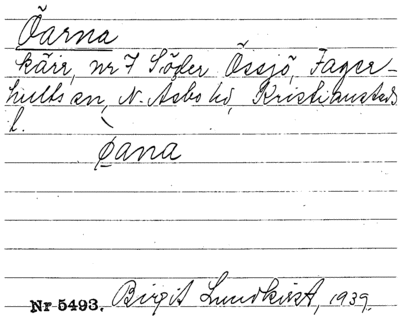 Öarna
kärr, nr 7 Söder Össjö, Fager-
hults sn, N. Åsbo hd, Kristianstads
l.
øana
Nr 5493. Birgit Lundkvist, 1939.